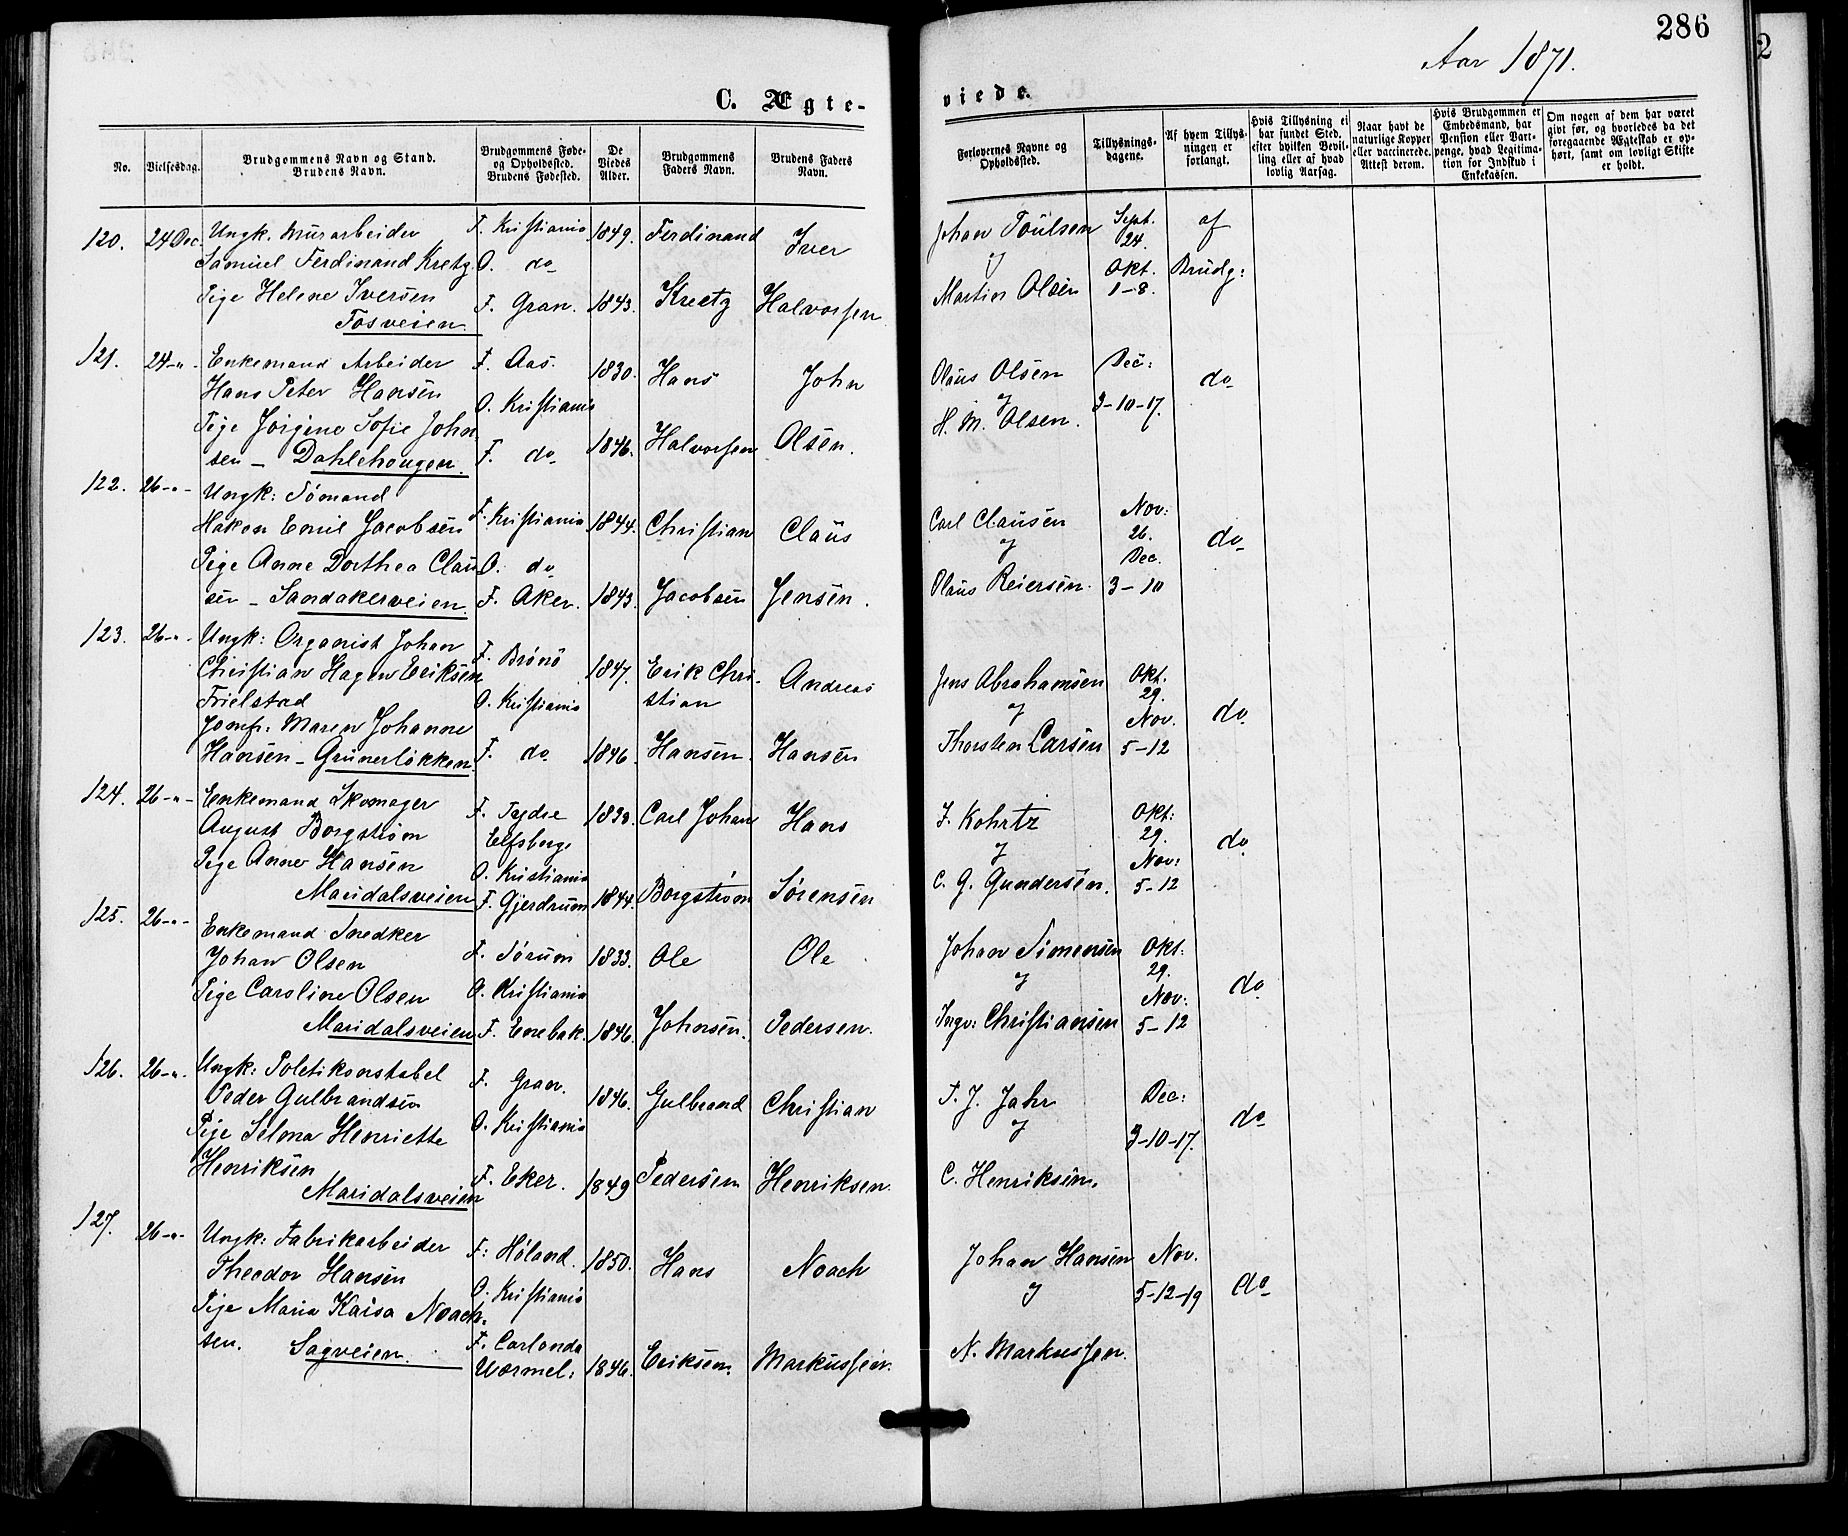 286
2
Aar 1871.
C. Ægte-
viede.
No.
Vielsesdag.
Brudgommens Navn og Stand.
Brudens Navn.
Brudgommens Føde-
og Opholdssted.
Brudens Fødested.
De
Viedes
Alder.
Brudgommens
Faders Navn.
Brudens Faders
Navn.
Forlovernes Navne og
Opholdssted.
Tillysnings-
dagene.
Af hvem Tillys-
ningen er
forlangt.
Hvis Tillysning ei
har fundet Sted,
efter hvilken Bevil-
ling eller af hvad
lovlig Aarsag.
Naar havt de
naturlige Kopper
eller vaccinerede.
Attest derom.
Hvis Brudgommen er
Embedsmand, har
Pension eller Vart-
penge, hvad Legitima-
tion for Indskud i
Enkekassen.
Om nogen af dem har været
givt før, og hvorledes da det
foregaaende Ægteskab er op-
hørt, samt om lovligt Skifte
er holdt.
120. 24 Dec. Ungk. Murarbeider F. Kristiania 1849. Ferdinand Iver Johan Poulsen Sept. 24. af
Samuel Ferdinand Kretz. O. do og Okt. Brudg:
Pige Helene Iversen F. Gran. 1843. Kretz Halvorsen Martin Olsen 1-8.
Fosveien
121. 24-"- Enkemand Arbeider F. Aas. 1830. Hans John Olaus Olsen Dec: do
Hans Peter Hansen O. Kristiania og 3-10-17.
Pige Jørgine Sofie John F. do 1846. Halvorsen Olsen. H. M. Olsen.
sen - Dahlehougen.
122. 26-"- Ungk: Sømand F. Kristiania 1844. Christian Claus Carl Clausen Nov: 26. do
Hakon Emil Jacobsen O. do og Dec.
Pige Anne Dorthea Clau F. Aker. 1843. Jacobsen Jensen. Olaus Reiersen. 3-10
sen - Sandakerveien
123. 26-"- Ungk: Organist Johan F. Brønø 1847. Erik Chri- Andreas Jens Abrahamsen Okt. 29. do
Christian Hagen Eriksen O. Kristiania stian og Nov.
Frielstad
Jomfr. Maren Johanne F. do 1846. Hansen. Hansen Thorsten Larsen 5-12
Hansen - Grünerløkken.
124. 26-"- Enkemand Skomager F. Sydre 1838. Carl Johan Hans J. Kohrtz Okt: 29. do
August Borgstrøm Elfsborg. og Nov:
Pige Anne Hansen O. Kristiania
Maridalsveien F. Gjerdrum 1844. Borgstrøm Sørensen C. G. Gundersen. 5-12
125. 26-"- Enkemand Snedker F. Sørum 1833. Ole Ole Johan Simensen Okt: 29. do
Johan Olsen O. Kristiania og Nov:
Pige Caroline Olsen
Maridalsveien F. Enebak. 1846. Johnsen. Pedersen. Ingv: Christiansen 5-12
126. 26-"- Ungk: Poletikonstabel F. Gran. 1846. Gulbrand Christian P. J. Jahr Dec: do
Peder Gulbrandsen O. Kristiania og 3-10-17.
Pige Selma Henriette
Henriksen F. Eker. 1849 Pedersen Henriksen. C. Henriksen.
Maridalsveien
127. 26-"- Ungk: Fabrikarbeider F: Høland. 1850. Hans Noach Johan Hansen Nov. do
Theodor Hansen O. Kristiania og 5-12-19
Pige Maria Kaisa Noach- F. Carlanda
sen. Sagveien. Wærmel: 1846. Eriksen. Markussen. N. Markussen.